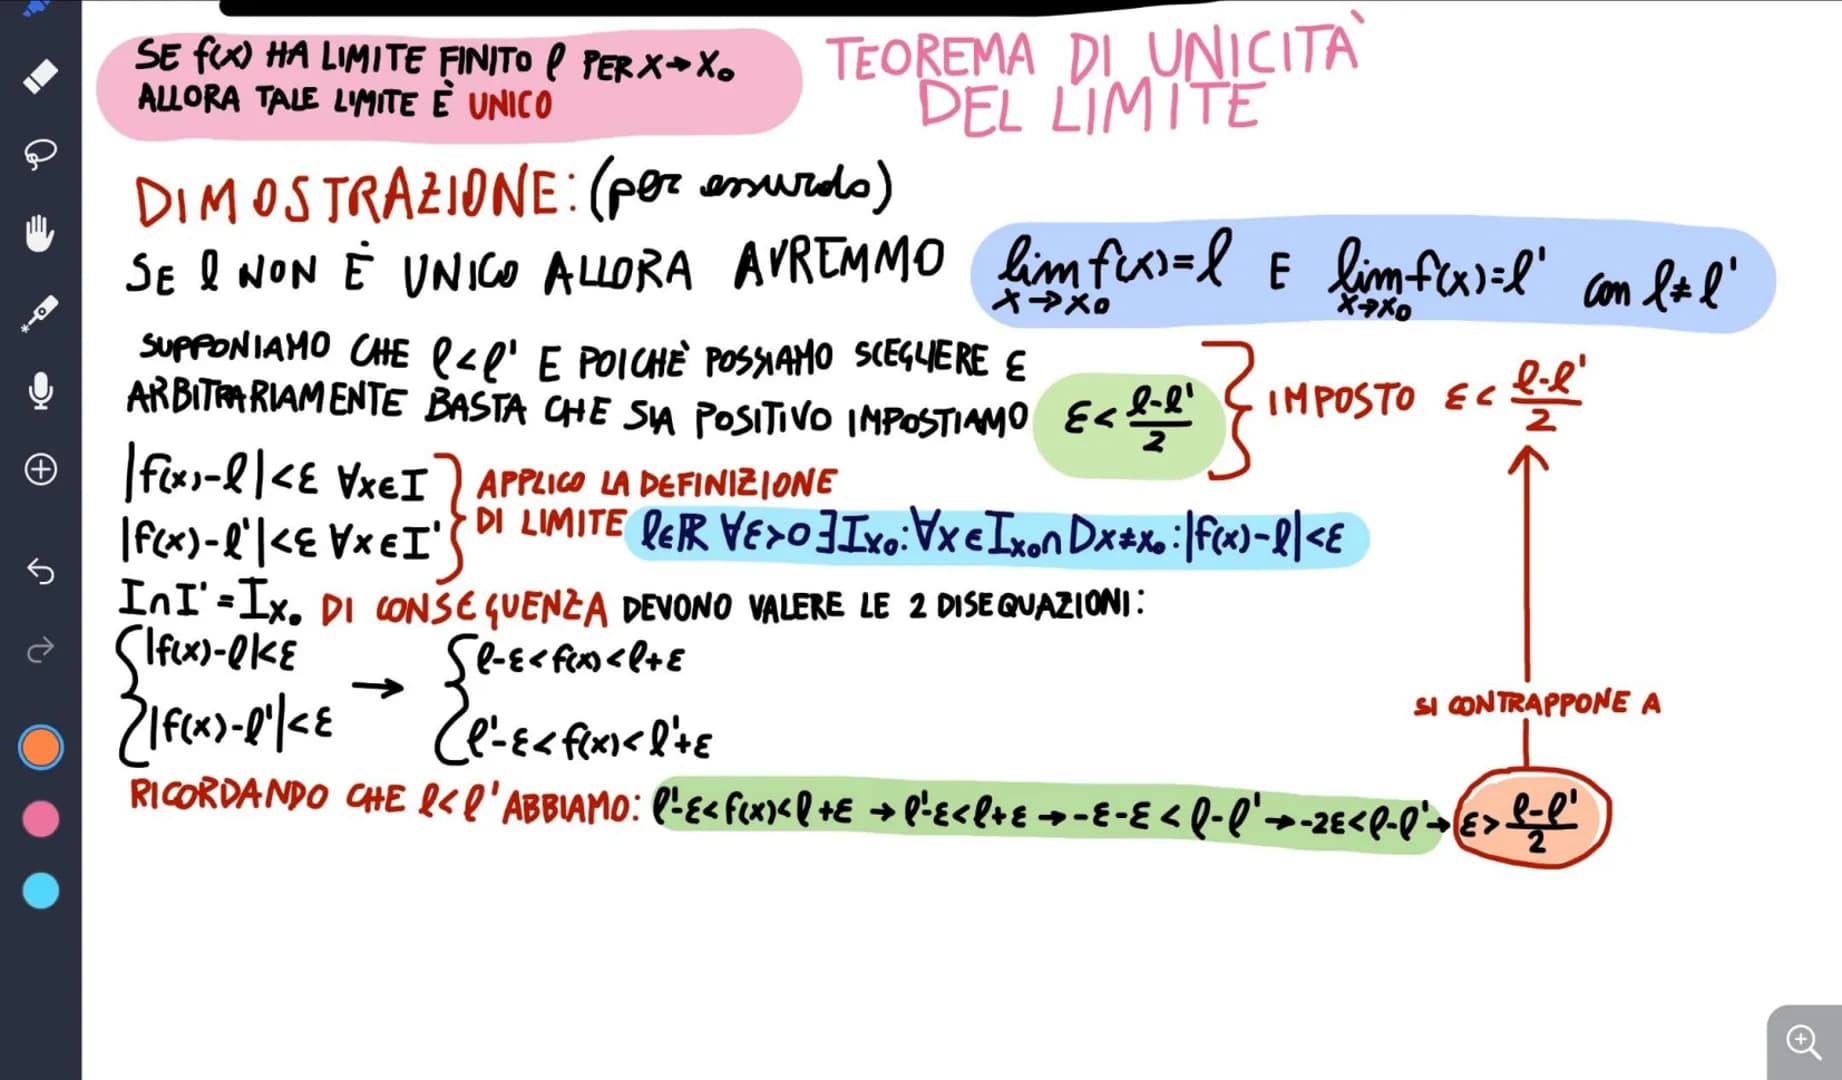 SE f(x) HA LIMITE FINITO ℓ PER X→X₀
ALLORA TALE LIMITE È UNICO
TEOREMA DI UNICITÀ
DEL LIMITE
DIMOSTRAZIONE: (per assurdo)
SE ℓ NON È UNICO ALLORA AVREMMO lim f(x)=ℓ E lim f(x)=ℓ' con ℓ≠ℓ'
x→x₀ x→x₀
SUPPONIAMO CHE ℓ<ℓ' E POICHÈ POSSIAMO SCEGLIERE ε
ARBITRARIAMENTE BASTA CHE SIA POSITIVO IMPOSTIAMO ε< (ℓ-ℓ')/2 } IMPOSTO ε< (ℓ-ℓ')/2
|f(x)-ℓ|<ε ∀x∈I
|f(x)-ℓ'|<ε ∀x∈I'
} APPLICO LA DEFINIZIONE
DI LIMITE ℓ∈ℝ ∀ε>0 ∃Ix₀:∀x∈Ix₀∩D x≠x₀:|f(x)-ℓ|<ε
I∩I'=Ix₀ DI CONSEGUENZA DEVONO VALERE LE 2 DISEQUAZIONI:
{ |f(x)-ℓ|<ε
|f(x)-ℓ'|<ε
→ { ℓ-ε<f(x)<ℓ+ε
ℓ'-ε<f(x)<ℓ'+ε
SI CONTRAPPONE A
RICORDANDO CHE ℓ<ℓ' ABBIAMO: ℓ'-ε<f(x)<ℓ+ε → ℓ'-ε<ℓ+ε → -ε-ε<ℓ-ℓ' → -2ε<ℓ-ℓ' → ε> (ℓ-ℓ')/2